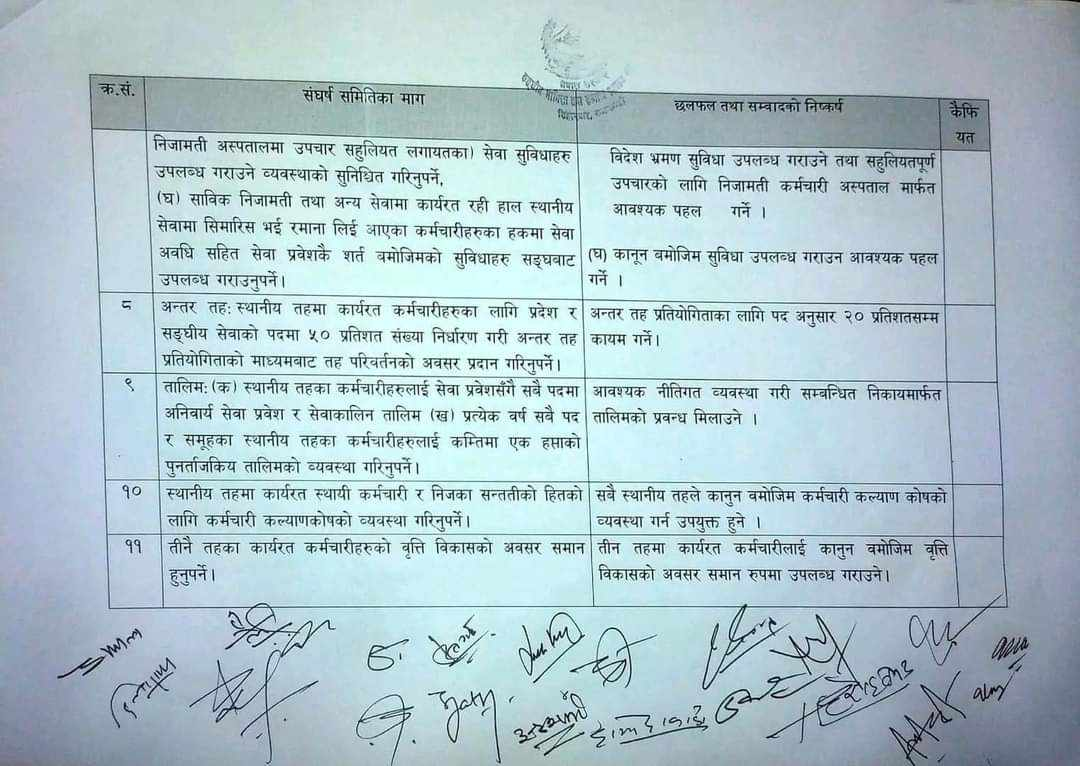 क्र.सं.
संघर्ष समितिका माग
छलफल तथा सम्वादको निष्कर्ष
कैफि
यत
निजामती अस्पतालमा उपचार सहुलियत लगायतका) सेवा सुविधाहरु
उपलब्ध गराउने व्यवस्थाको सुनिश्चित गरिनुपर्ने,
(घ) साविक निजामती तथा अन्य सेवामा कार्यरत रही हाल स्थानीय
सेवामा सिमारिस भई रमाना लिई आएका कर्मचारीहरुका हकमा सेवा
अवधि सहित सेवा प्रवेशकै शर्त वमोजिमको सुविधाहरु सङ्घबाट
उपलब्ध गराउनुपर्ने।
विदेश भ्रमण सुविधा उपलब्ध गराउने तथा सहुलियतपूर्ण
उपचारको लागि निजामती कर्मचारी अस्पताल मार्फत
आवश्यक पहल गर्ने ।
(घ) कानून वमोजिम सुविधा उपलब्ध गराउन आवश्यक पहल
गर्ने ।
८
अन्तर तह: स्थानीय तहमा कार्यरत कर्मचारीहरुका लागि प्रदेश र
सङ्घीय सेवाको पदमा ५० प्रतिशत संख्या निर्धारण गरी अन्तर तह
प्रतियोगिताको माध्यमबाट तह परिवर्तनको अवसर प्रदान गरिनुपर्ने।
अन्तर तह प्रतियोगिताका लागि पद अनुसार २० प्रतिशतसम्म
कायम गर्ने।
९
तालिम: (क) स्थानीय तहका कर्मचारीहरुलाई सेवा प्रवेशसँगै सबै पदमा
अनिवार्य सेवा प्रवेश र सेवाकालिन तालिम (ख) प्रत्येक वर्ष सबै पद
र समूहका स्थानीय तहका कर्मचारीहरुलाई कम्तिमा एक हप्ताको
पुनर्ताजकिय तालिमको व्यवस्था गरिनुपर्ने।
आवश्यक नीतिगत व्यवस्था गरी सम्बन्धित निकायमार्फत
तालिमको प्रवन्ध मिलाउने ।
१०
स्थानीय तहमा कार्यरत स्थायी कर्मचारी र निजका सन्ततीको हितको
लागि कर्मचारी कल्याणकोषको व्यवस्था गरिनुपर्ने।
सवै स्थानीय तहले कानुन वमोजिम कर्मचारी कल्याण कोषको
व्यवस्था गर्न उपयुक्त हुने ।
११
तीनै तहका कार्यरत कर्मचारीहरुको वृत्ति विकासको अवसर समान
हुनुपर्ने।
तीन तहमा कार्यरत कर्मचारीलाई कानुन वमोजिम वृत्ति
विकासको अवसर समान रुपमा उपलब्ध गराउने।